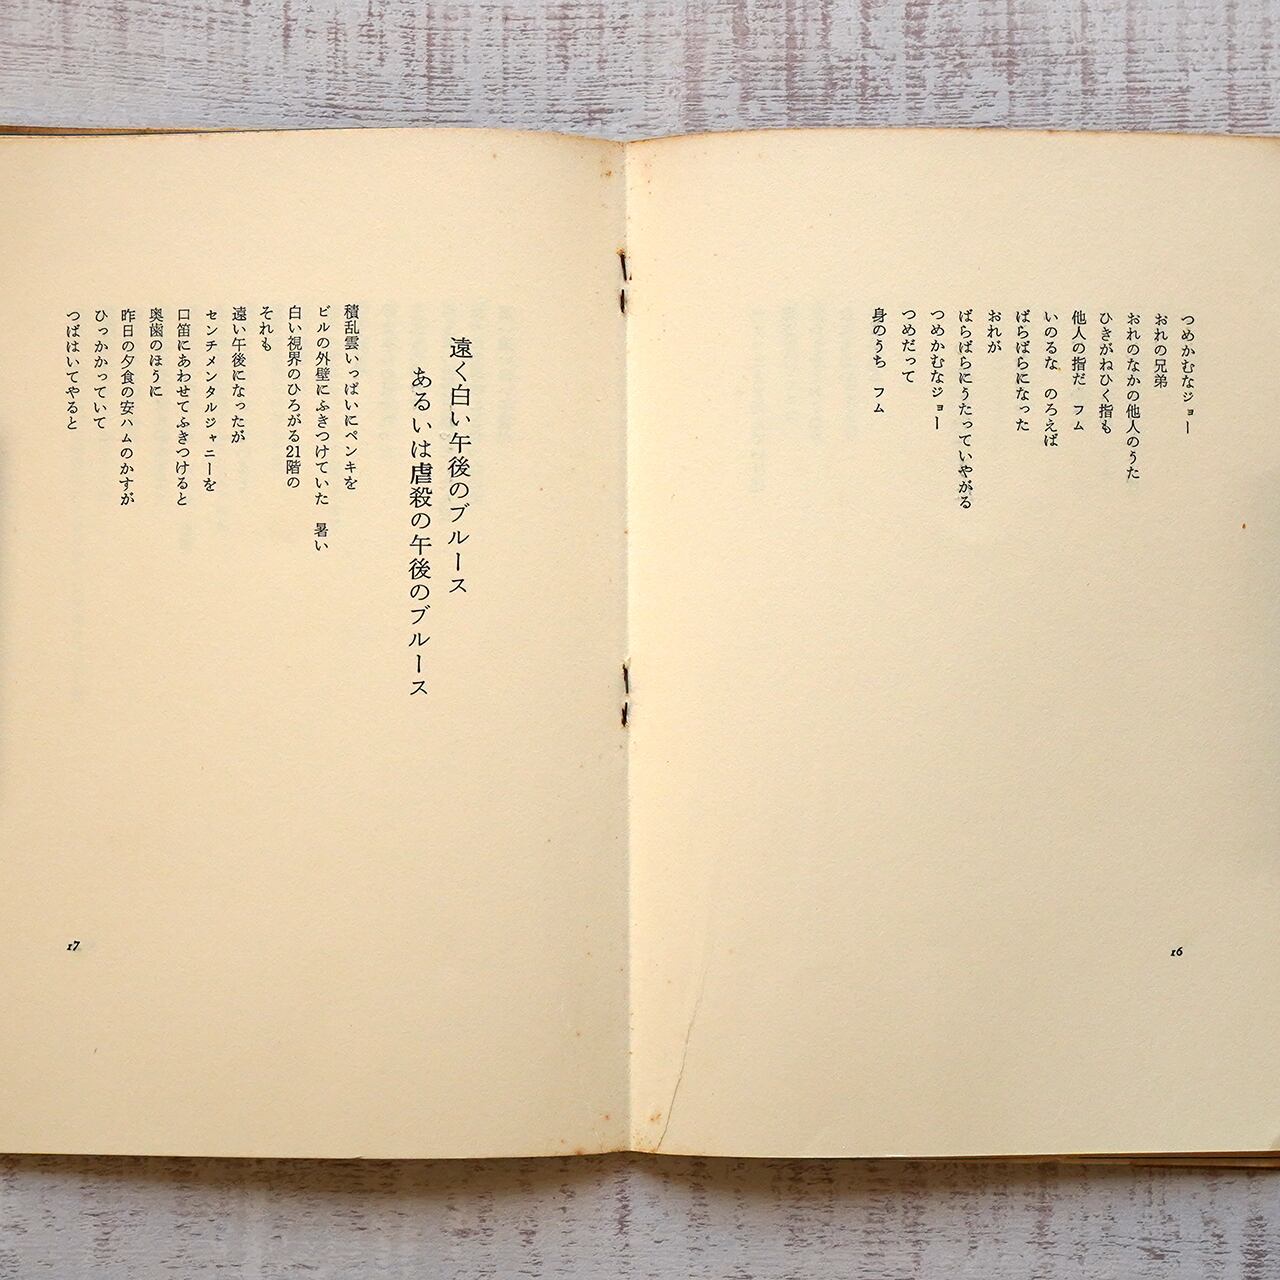 つめかむなジョー
おれの兄弟
おれのなかの他人のうた
ひきがねひく指も
他人の指だ　フム
いのるな　のろえば
ばらばらになった
おれが
ばらばらにうたっていやがる
つめかむなジョー
つめだって
身のうち　フム
16
遠く白い午後のブルース
あるいは虐殺の午後のブルース
積乱雲いっぱいにペンキを
ビルの外壁にふきつけていた　暑い
白い視界のひろがる21階の
それも
遠い午後になったが
センチメンタルジャニーを
口笛にあわせてふきつけると
奥歯のほうに
昨日の夕食の安ハムのかすが
ひっかかっていて
つばはいてやると
17